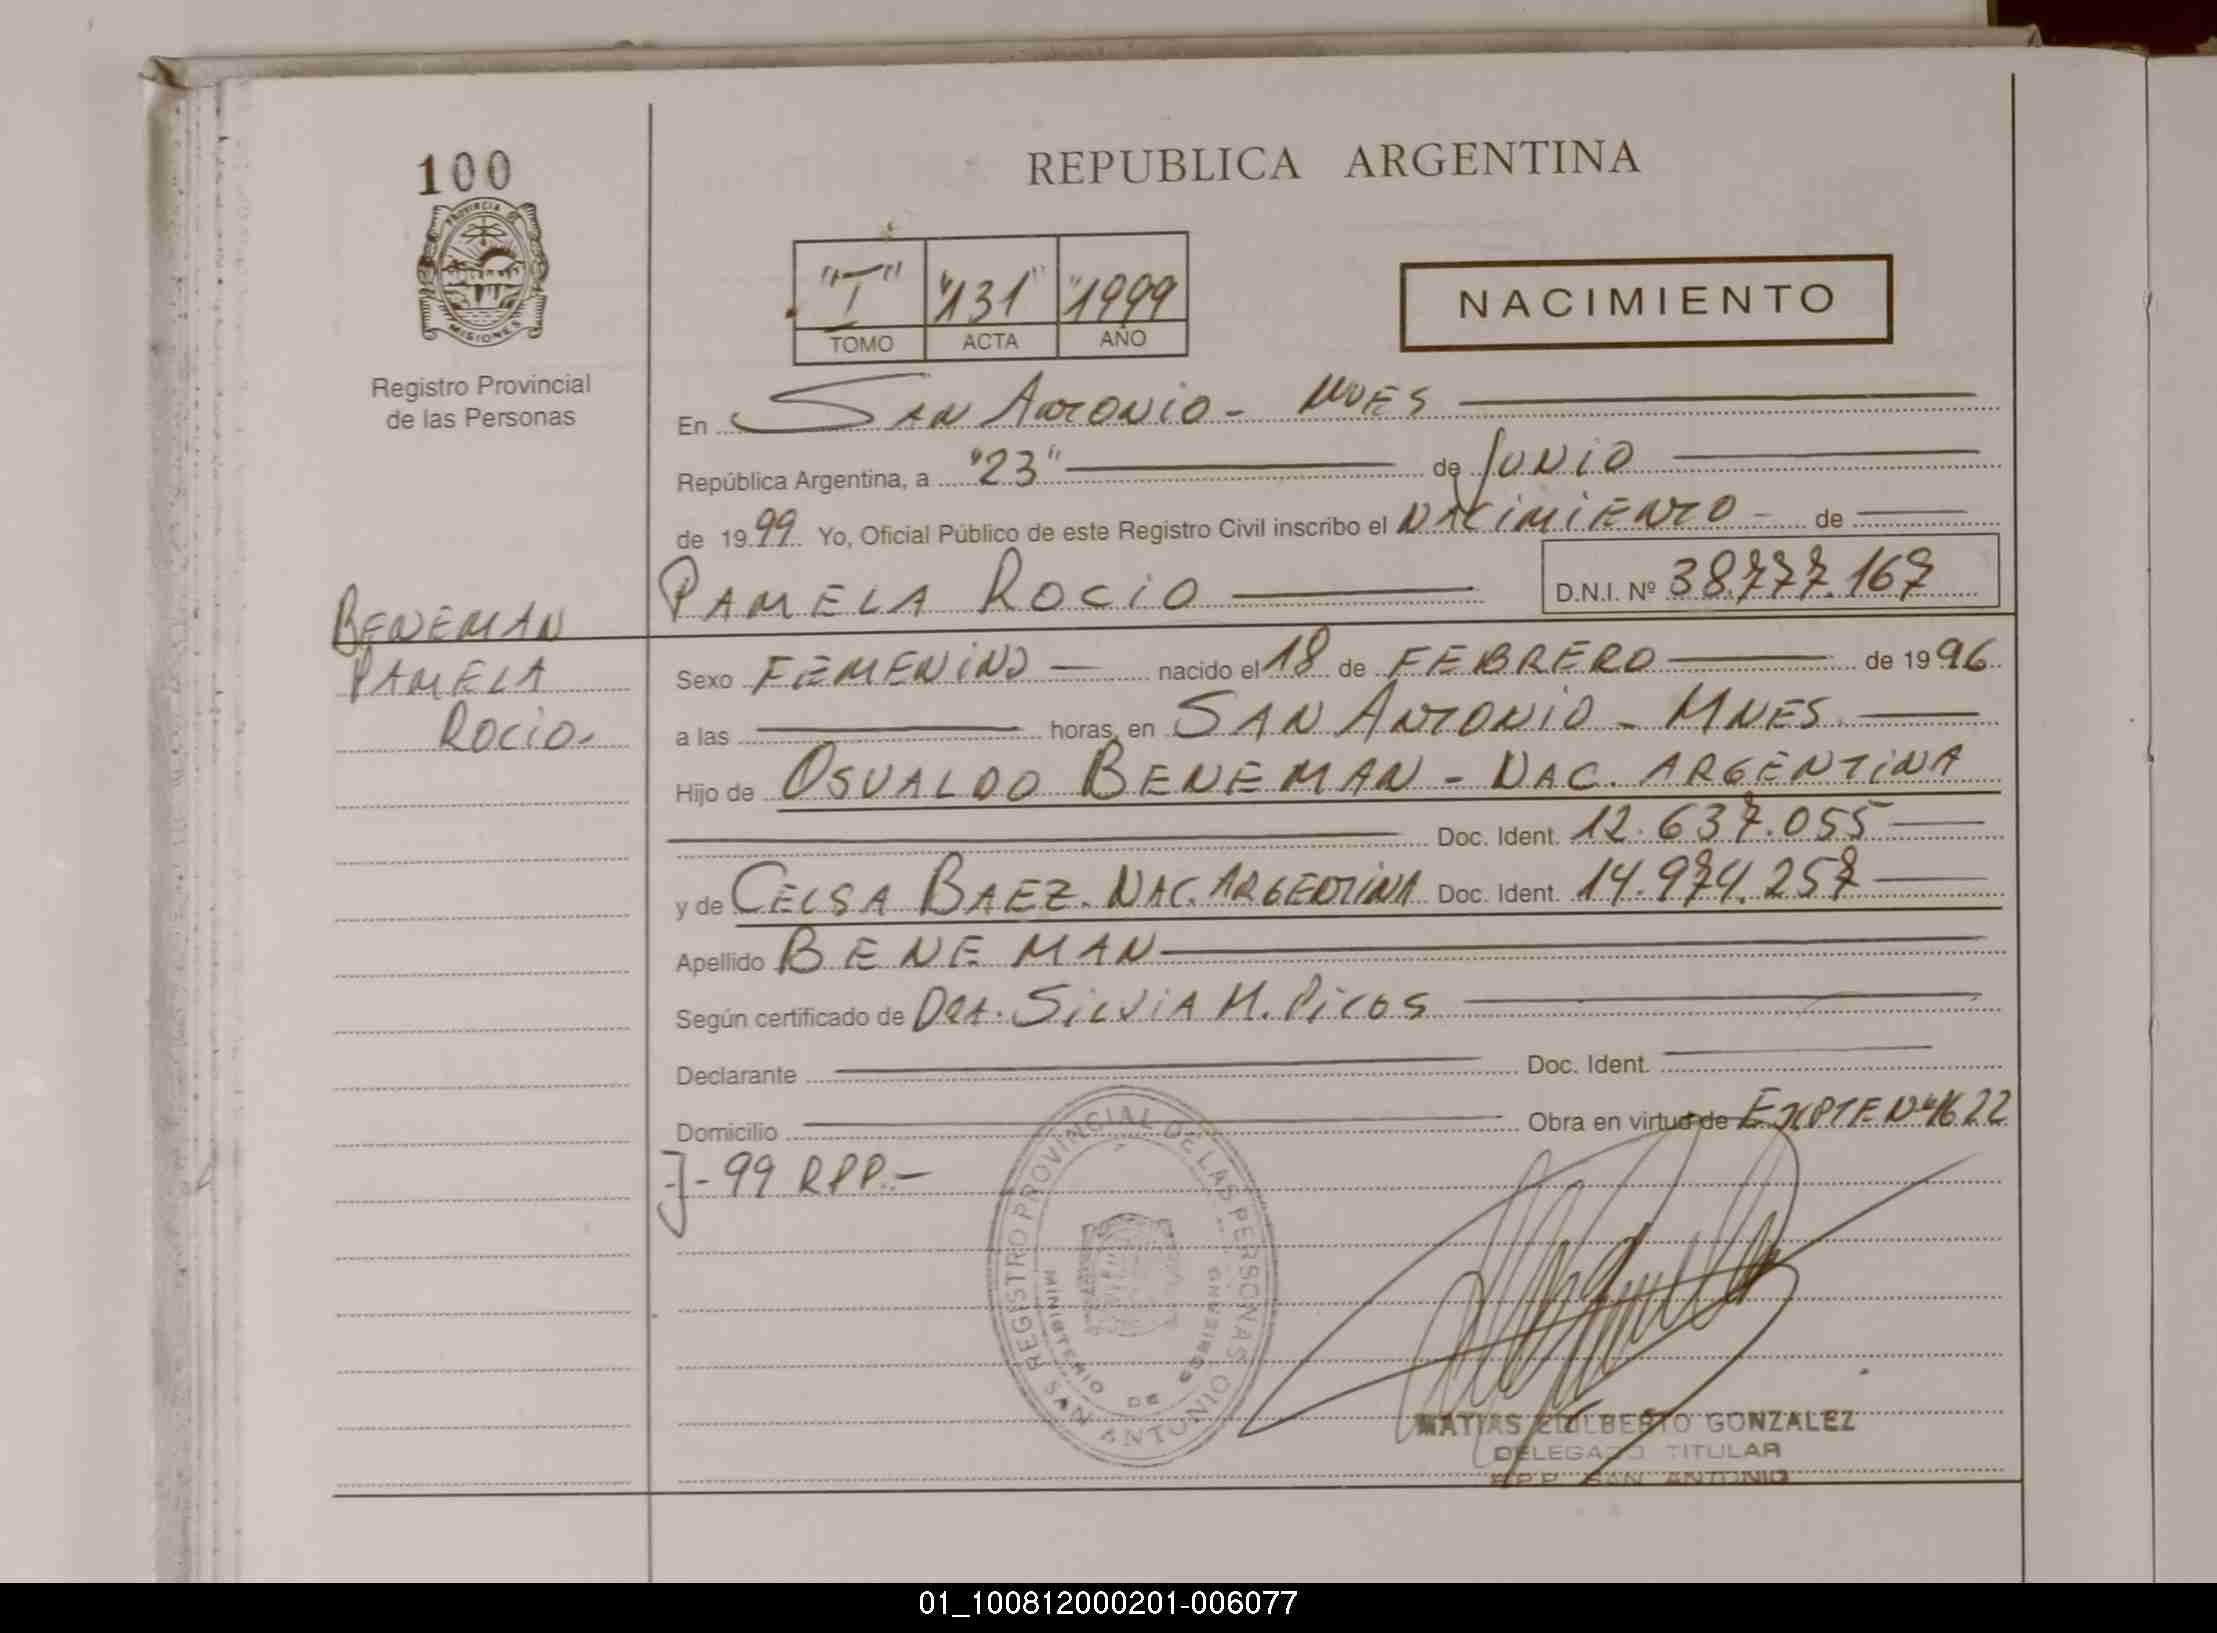 100
PROVINCIA DE
MISIONES
Registro Provincial
de las Personas
REPUBLICA ARGENTINA
"I" "131" "1999"
TOMO ACTA AÑO
NACIMIENTO
En SAN ANTONIO - MNES
República Argentina, a "23" de JUNIO
de 1999 Yo, Oficial Público de este Registro Civil inscribo el NACIMIENTO - de
PAMELA ROCIO D.N.I. Nº 38.777.167
BENEMAN
PAMELA
ROCIO.
Sexo FEMENINO nacido el 18 de FEBRERO de 1996
a las horas, en SAN ANTONIO - MNES
Hijo de OSVALDO BENEMAN - NAC. ARGENTINA
Doc. Ident. 12.637.055
y de CELSA BAEZ. NAC. ARGENTINA Doc. Ident. 14.974.257
Apellido BENEMAN
Según certificado de DRA. SILVIA M. PICOS
Declarante Doc. Ident.
Domicilio Obra en virtud de EXPTE Nº 1622
J-99 RPP.-
REGISTRO PROVINCIAL DE LAS PERSONAS
MINISTERIO DE GOBIERNO
SAN ANTONIO
MATIAS EDILBERTO GONZALEZ
DELEGADO TITULAR
R.P.P. SAN ANTONIO
01_100812000201-006077